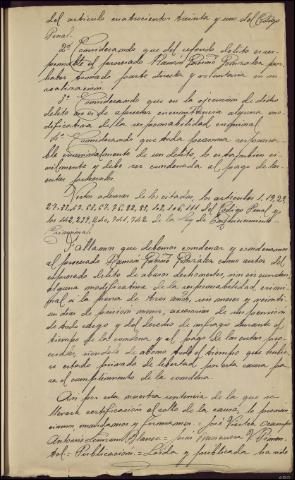 del artículo cuatrocientos treinta y uno del Código
Penal.
2º Considerando que del referido delito es res-
ponsable el procesado Ramón Patiño Peñzater por
haber tomado parte directa y voluntaria en su
realización.
3º Considerando que en la ejecución de dicho
delito no es de apreciar circunstancia alguna mo-
dificativa de la responsabilidad criminal
4º Considerando que toda persona responsa-
ble criminalmente de un delito, lo es también ci-
vilmente y debe ser condenada al pago de las
costas procesales.
Vistos además de los citados, los artículos 1, 12, 23,
del Código Penal y
los 142, 239, 240, 741, 742 de la Ley de Enjuiciamiento
Criminal.
Fallamos que debemos condenar y condenamos
al procesado Ramón Patiño como autor del
expresado delito de abusos deshonestos, sin circunstancia
alguna modificativa de la responsabilidad crimi-
nal a la pena de tres años, seis meses y veintiún
días de prisión menor, accesorias de suspensión
de todo cargo y del derecho de sufragio durante el
tiempo de la condena y al pago de las costas proce-
sales, siéndole de abono todo el tiempo que hubie-
re estado privado de libertad por esta causa pa-
ra el cumplimiento de la condena.
Así por esta nuestra sentencia de la que se
llevará certificación al rollo de la causa, lo pronun-
ciamos mandamos y firmamos = José Vieitez Ocampo
Antonio Blanco = José V. Pimen-
tel = Publicación = Leída y publicada ha sido